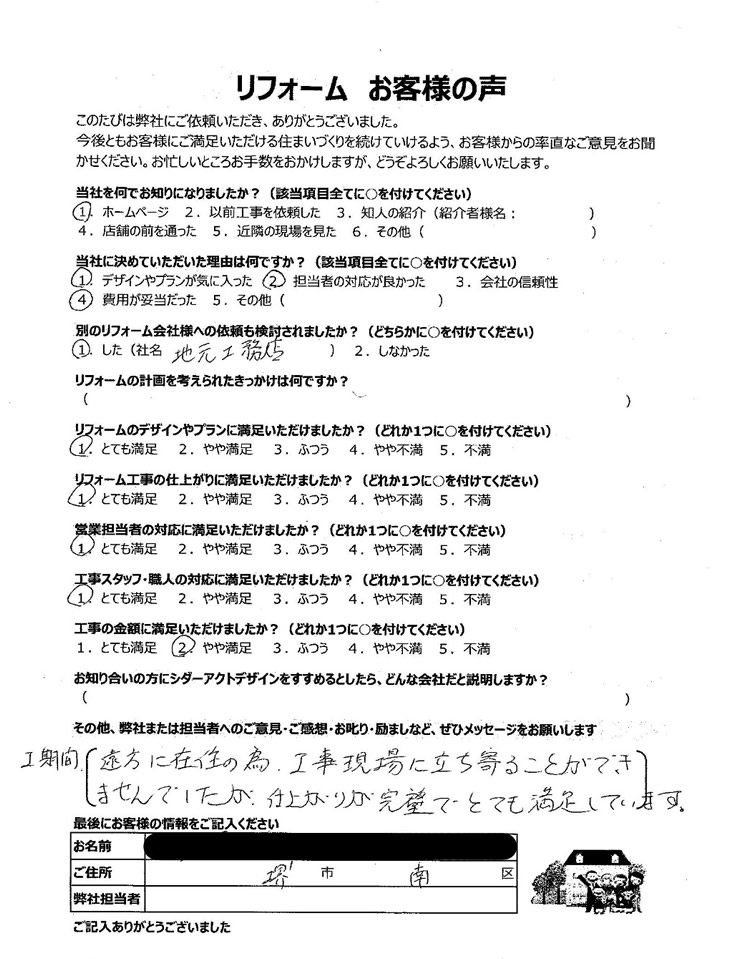 リフォーム　お客様の声
このたびは弊社にご依頼いただき、ありがとうございました。
今後ともお客様にご満足いただける住まいづくりを続けていけるよう、お客様からの率直なご意見をお聞
かせください。お忙しいところお手数をおかけしますが、どうぞよろしくお願いいたします。
当社を何でお知りになりましたか？（該当項目全てに○を付けてください）
1．ホームページ　2．以前工事を依頼した　3．知人の紹介（紹介者様名：　　　　　）
4．店舗の前を通った　5．近隣の現場を見た　6．その他（　　　　　　　　　　　　）
当社に決めていただいた理由は何ですか？（該当項目全てに○を付けてください）
1．デザインやプランが気に入った　2．担当者の対応が良かった　3．会社の信頼性
4．費用が妥当だった　5．その他（　　　　　　　　　　　）
別のリフォーム会社様への依頼も検討されましたか？（どちらかに○を付けてください）
1．した（社名　地元工務店　　　）　2．しなかった
リフォームの計画を考えられたきっかけは何ですか？
（　　　　　　　　　　　　　　　　　　　　　　　　　　　　　　　　　　　　）
リフォームのデザインやプランに満足いただけましたか？（どれか1つに○を付けてください）
1．とても満足　2．やや満足　3．ふつう　4．やや不満　5．不満
リフォーム工事の仕上がりに満足いただけましたか？（どれか1つに○を付けてください）
1．とても満足　2．やや満足　3．ふつう　4．やや不満　5．不満
営業担当者の対応に満足いただけましたか？（どれか1つに○を付けてください）
1．とても満足　2．やや満足　3．ふつう　4．やや不満　5．不満
工事スタッフ・職人の対応に満足いただけましたか？（どれか1つに○を付けてください）
1．とても満足　2．やや満足　3．ふつう　4．やや不満　5．不満
工事の金額に満足いただけましたか？（どれか1つに○を付けてください）
1．とても満足　2．やや満足　3．ふつう　4．やや不満　5．不満
お知り合いの方にシダーアクトデザインをすすめるとしたら、どんな会社だと説明しますか？
（　　　　　　　　　　　　　　　　　　　　　　　　　　　　　　　　　　　　）
その他、弊社または担当者へのご意見・ご感想・お叱り・励ましなど、ぜひメッセージをお願いします
工期間、遠方に在住の為、工事現場に立ち寄ることができ
ませんでしたが、仕上がりが完璧でとても満足しています。
最後にお客様の情報をご記入ください
お名前
ご住所　堺　市　南　区
弊社担当者
ご記入ありがとうございました